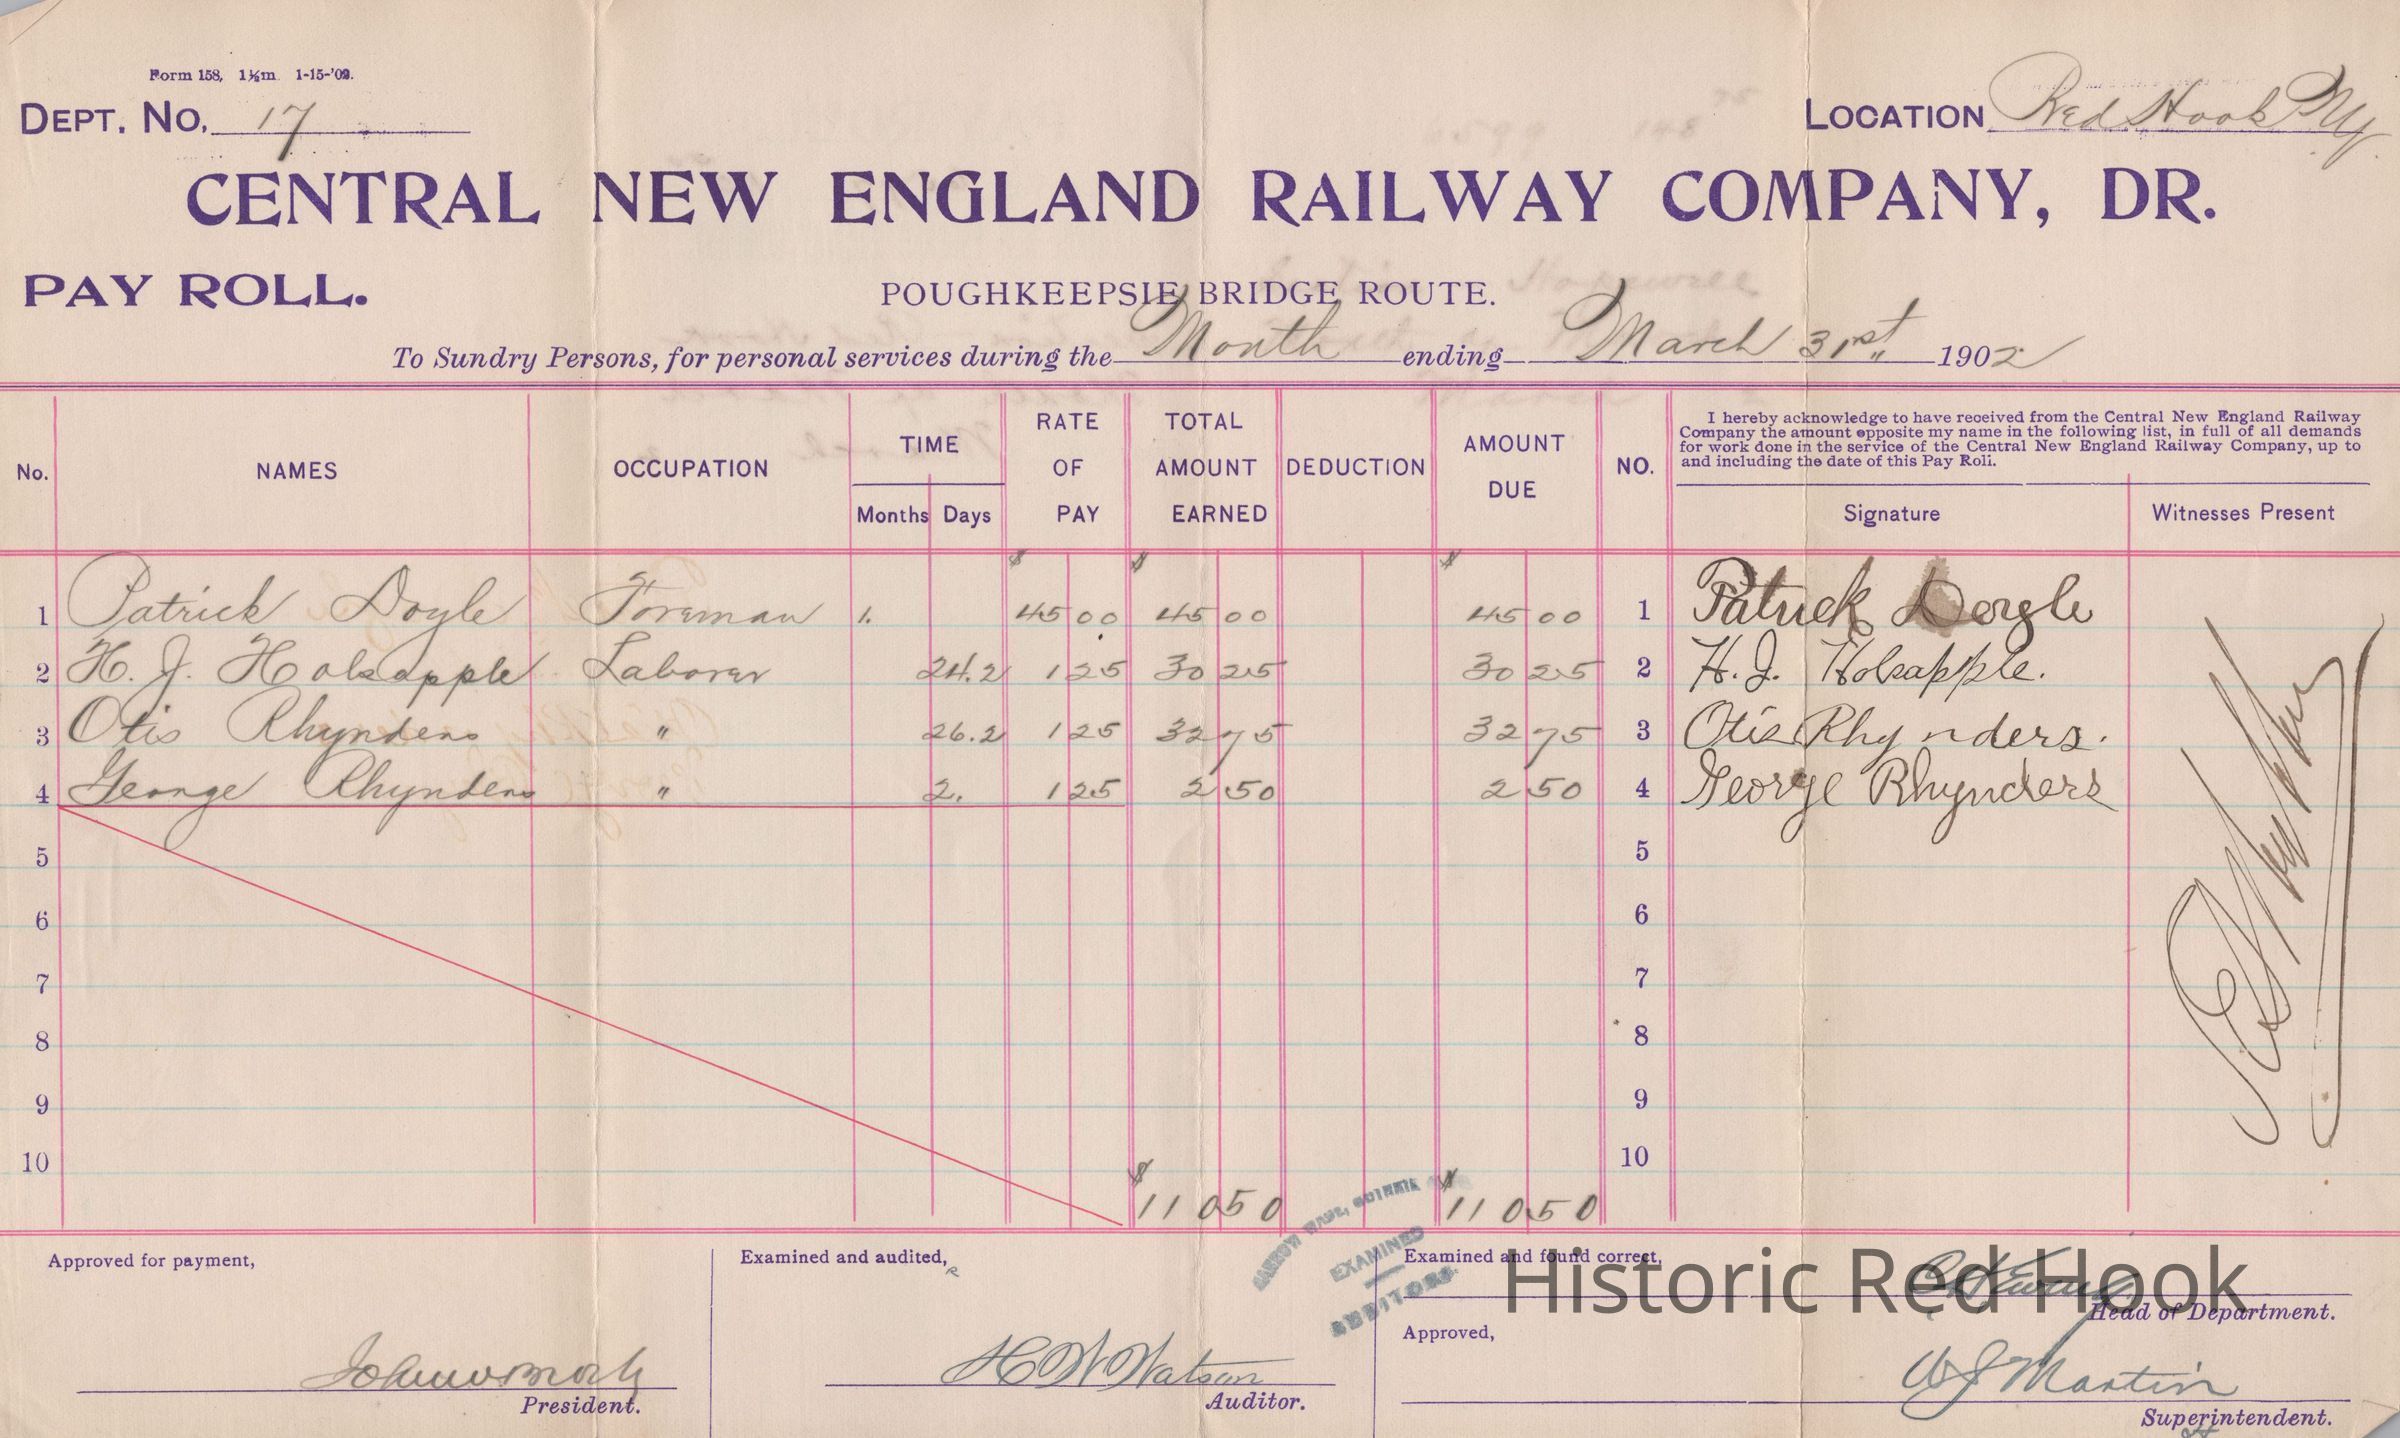 Form 158, 1½m 1-15-'02.
DEPT. No. 17
LOCATION Red Hook NY
CENTRAL NEW ENGLAND RAILWAY COMPANY, DR.
PAY ROLL.
POUGHKEEPSIE BRIDGE ROUTE.
To Sundry Persons, for personal services during the Month ending March 31st 1902
No. NAMES OCCUPATION TIME Months Days RATE OF PAY TOTAL AMOUNT EARNED DEDUCTION AMOUNT DUE NO.
I hereby acknowledge to have received from the Central New England Railway
Company the amount opposite my name in the following list, in full of all demands
for work done in the service of the Central New England Railway Company, up to
and including the date of this Pay Roll.
Signature Witnesses Present
$ $ $
1 Patrick Doyle Foreman 1. 45 00 45 00 45 00 1 Patrick Doyle
2 H. J. Holsapple Laborer 24.2 1 25 30 25 30 25 2 H. J. Holsapple.
3 Otis Rhynders " 26.2 1 25 32 75 32 75 3 Otis Rhynders.
4 George Rhynders " 2. 1 25 2 50 2 50 4 George Rhynders
5 5
6 6
7 7
8 8
9 9
10 10
$110 50 $110 50
Approved for payment,
President.
Examined and audited,
H W Watson
Auditor.
EXAMINED
AUDITORS
Examined and found correct,
Head of Department.
Approved,
W J Martin
Superintendent.
Historic Red Hook